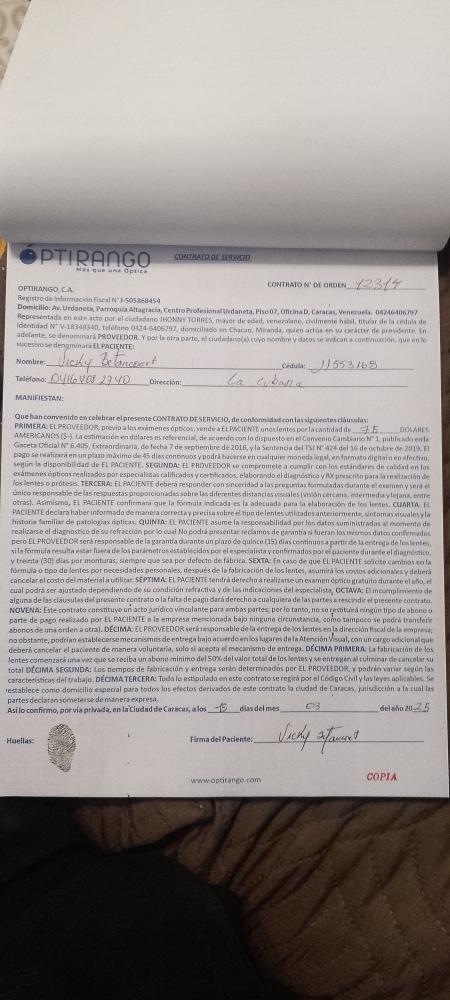 ÓPTIRANGO
Más que una Óptica
CONTRATO DE SERVICIO
CONTRATO N° DE ORDEN 12314
OPTIRANGO, C.A.
Registro de Información Fiscal N° J-505868454
Domicilio: Av. Urdaneta, Parroquia Altagracia, Centro Profesional Urdaneta, Piso 07, Oficina D, Caracas, Venezuela. 04246406797
Representada en este acto por el ciudadano JHONNY TORRES, mayor de edad, venezolano, civilmente hábil, titular de la cédula de
Identidad N° V-18348340, teléfono 0424-6406797, domiciliado en Chacao, Miranda, quien actúa en su carácter de presidente. En
adelante, se denominará PROVEEDOR. Y por la otra parte, el ciudadano(a) cuyo nombre y datos se indican a continuación, que en lo
sucesivo se denominará EL PACIENTE:
Nombre: Vicky Betancourt Cédula: 11553168
Teléfono: 0416 408 2740 Dirección: La Cubana
MANIFIESTAN:
Que han convenido en celebrar el presente CONTRATO DE SERVICIO, de conformidad con las siguientes cláusulas:
PRIMERA: EL PROVEEDOR, previo a los exámenes ópticos, vende a EL PACIENTE unos lentes por la cantidad de 75 DOLARES
AMERICANOS ($-). La estimación en dólares es referencial, de acuerdo con lo dispuesto en el Convenio Cambiario N° 1, publicado en la
Gaceta Oficial N° 6.405, Extraordinaria, de fecha 7 de septiembre de 2018, y la Sentencia del TSJ N° 424 del 16 de octubre de 2019. El
pago se realizará en un plazo máximo de 45 días continuos y podrá hacerse en cualquier moneda legal, en formato digital o en efectivo,
según la disponibilidad de EL PACIENTE. SEGUNDA: EL PROVEEDOR se compromete a cumplir con los estándares de calidad en los
exámenes ópticos realizados por especialistas calificados y certificados, elaborando el diagnóstico y RX prescrito para la realización de
los lentes o prótesis. TERCERA: EL PACIENTE deberá responder con sinceridad a las preguntas formuladas durante el examen y será el
único responsable de las respuestas proporcionadas sobre las diferentes distancias visuales (visión cercana, intermedia y lejana, entre
otras). Asimismo, EL PACIENTE confirmará que la fórmula indicada es la adecuada para la elaboración de los lentes. CUARTA: EL
PACIENTE declara haber informado de manera correcta y precisa sobre el tipo de lentes utilizados anteriormente, síntomas visuales y la
historia familiar de patologías ópticas. QUINTA: EL PACIENTE asume la responsabilidad por los datos suministrados al momento de
realizarse el diagnostico de su refracción por lo cual No podrá presentar reclamos de garantía si fueran los mismos datos confirmados
pero EL PROVEEDOR será responsable de la garantía durante un plazo de quince (15) días continuos a partir de la entrega de los lentes,
si la fórmula resulta estar fuera de los parámetros establecidos por el especialista y confirmados por el paciente durante el diagnóstico,
y treinta (30) días por monturas, siempre que sea por defecto de fábrica. SEXTA: En caso de que EL PACIENTE solicite cambios en la
fórmula o tipo de lentes por necesidades personales, después de la fabricación de los lentes, asumirá los costos adicionales y deberá
cancelar el costo del material a utilizar. SÉPTIMA: EL PACIENTE tendrá derecho a realizarse un examen óptico gratuito durante el año, el
cual podrá ser ajustado dependiendo de su condición refractiva y de las indicaciones del especialista. OCTAVA: El incumplimiento de
alguna de las cláusulas del presente contrato o la falta de pago dará derecho a cualquiera de las partes a rescindir el presente contrato.
NOVENA: Este contrato constituye un acto jurídico vinculante para ambas partes; por lo tanto, no se restituirá ningún tipo de abono o
parte de pago realizado por EL PACIENTE a la empresa mencionada bajo ninguna circunstancia, como tampoco se podrá transferir
abonos de una orden a otra). DÉCIMA: EL PROVEEDOR será responsable de la entrega de los lentes en la dirección fiscal de la empresa;
no obstante, podrían establecerse mecanismos de entrega bajo acuerdo en los lugares de la Atención Visual, con un cargo adicional que
deberá cancelar el paciente de manera voluntaria, solo si acepta el mecanismo de entrega. DÉCIMA PRIMERA: La fabricación de los
lentes comenzará una vez que se reciba un abono mínimo del 50% del valor total de los lentes y se entregan al culminar de cancelar su
total DÉCIMA SEGUNDA: Los tiempos de fabricación y entrega serán determinados por EL PROVEEDOR, y podrán variar según las
características del trabajo. DÉCIMA TERCERA: Todo lo estipulado en este contrato se regirá por el Código Civil y las leyes aplicables. Se
establece como domicilio especial para todos los efectos derivados de este contrato la ciudad de Caracas, jurisdicción a la cual las
partes declaran someterse de manera expresa.
Así lo confirmo, por vía privada, en la Ciudad de Caracas, a los 15 días del mes 03 del año 2025
Huellas:
Firma del Paciente: Vicky
www.optirango.com
COPIA